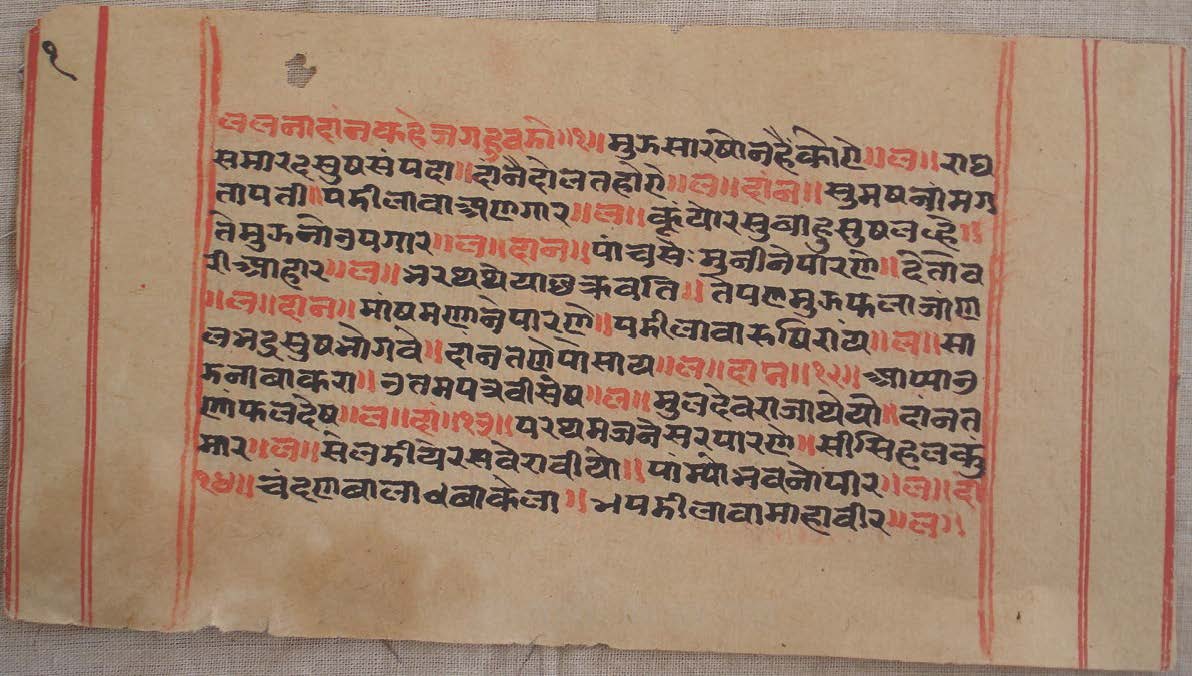 १
ललनादांनकहेजगहुवमो॥१॥मुऊसारषोनहैकोए॥ल॥राघ
समार२सुषसंपदा॥दांनैदोलतहोए॥ल॥दांन॥सुमषनांमग
तापती॥पडीलावाअणगार॥ल॥कूंयोरसुबाहुसुषलहै॥
तेमुऊनोउपगार॥ल॥दान॥पांचसेःमुनीनेपारणे॥देतोव
रीआहार॥ल॥भरथथयाछक्रवति॥तेपणमुऊफलाजांण
॥ल॥दान॥मांषमणनेपारणे॥पडीलावारुषिराय॥ल॥सा
लभद्रसुषभोगवे॥दानतणेपोसाय॥ल॥दान॥१२॥आप्पाउ
डनाबाकरा॥उतमपत्रवीसेष॥ल॥मुलदेवराजाथयो॥दांनत
णाफलदेष॥ल॥दां॥१३॥परथमजनेसरपारणे॥सीसिहलकुं
मार॥ल॥सेलडीयेरसवेरावीयो॥पांम्योभवनोपार॥ल॥दा
१४॥चंदणबालाउबाकेला॥भपडीलावामाहावीर॥ल॥